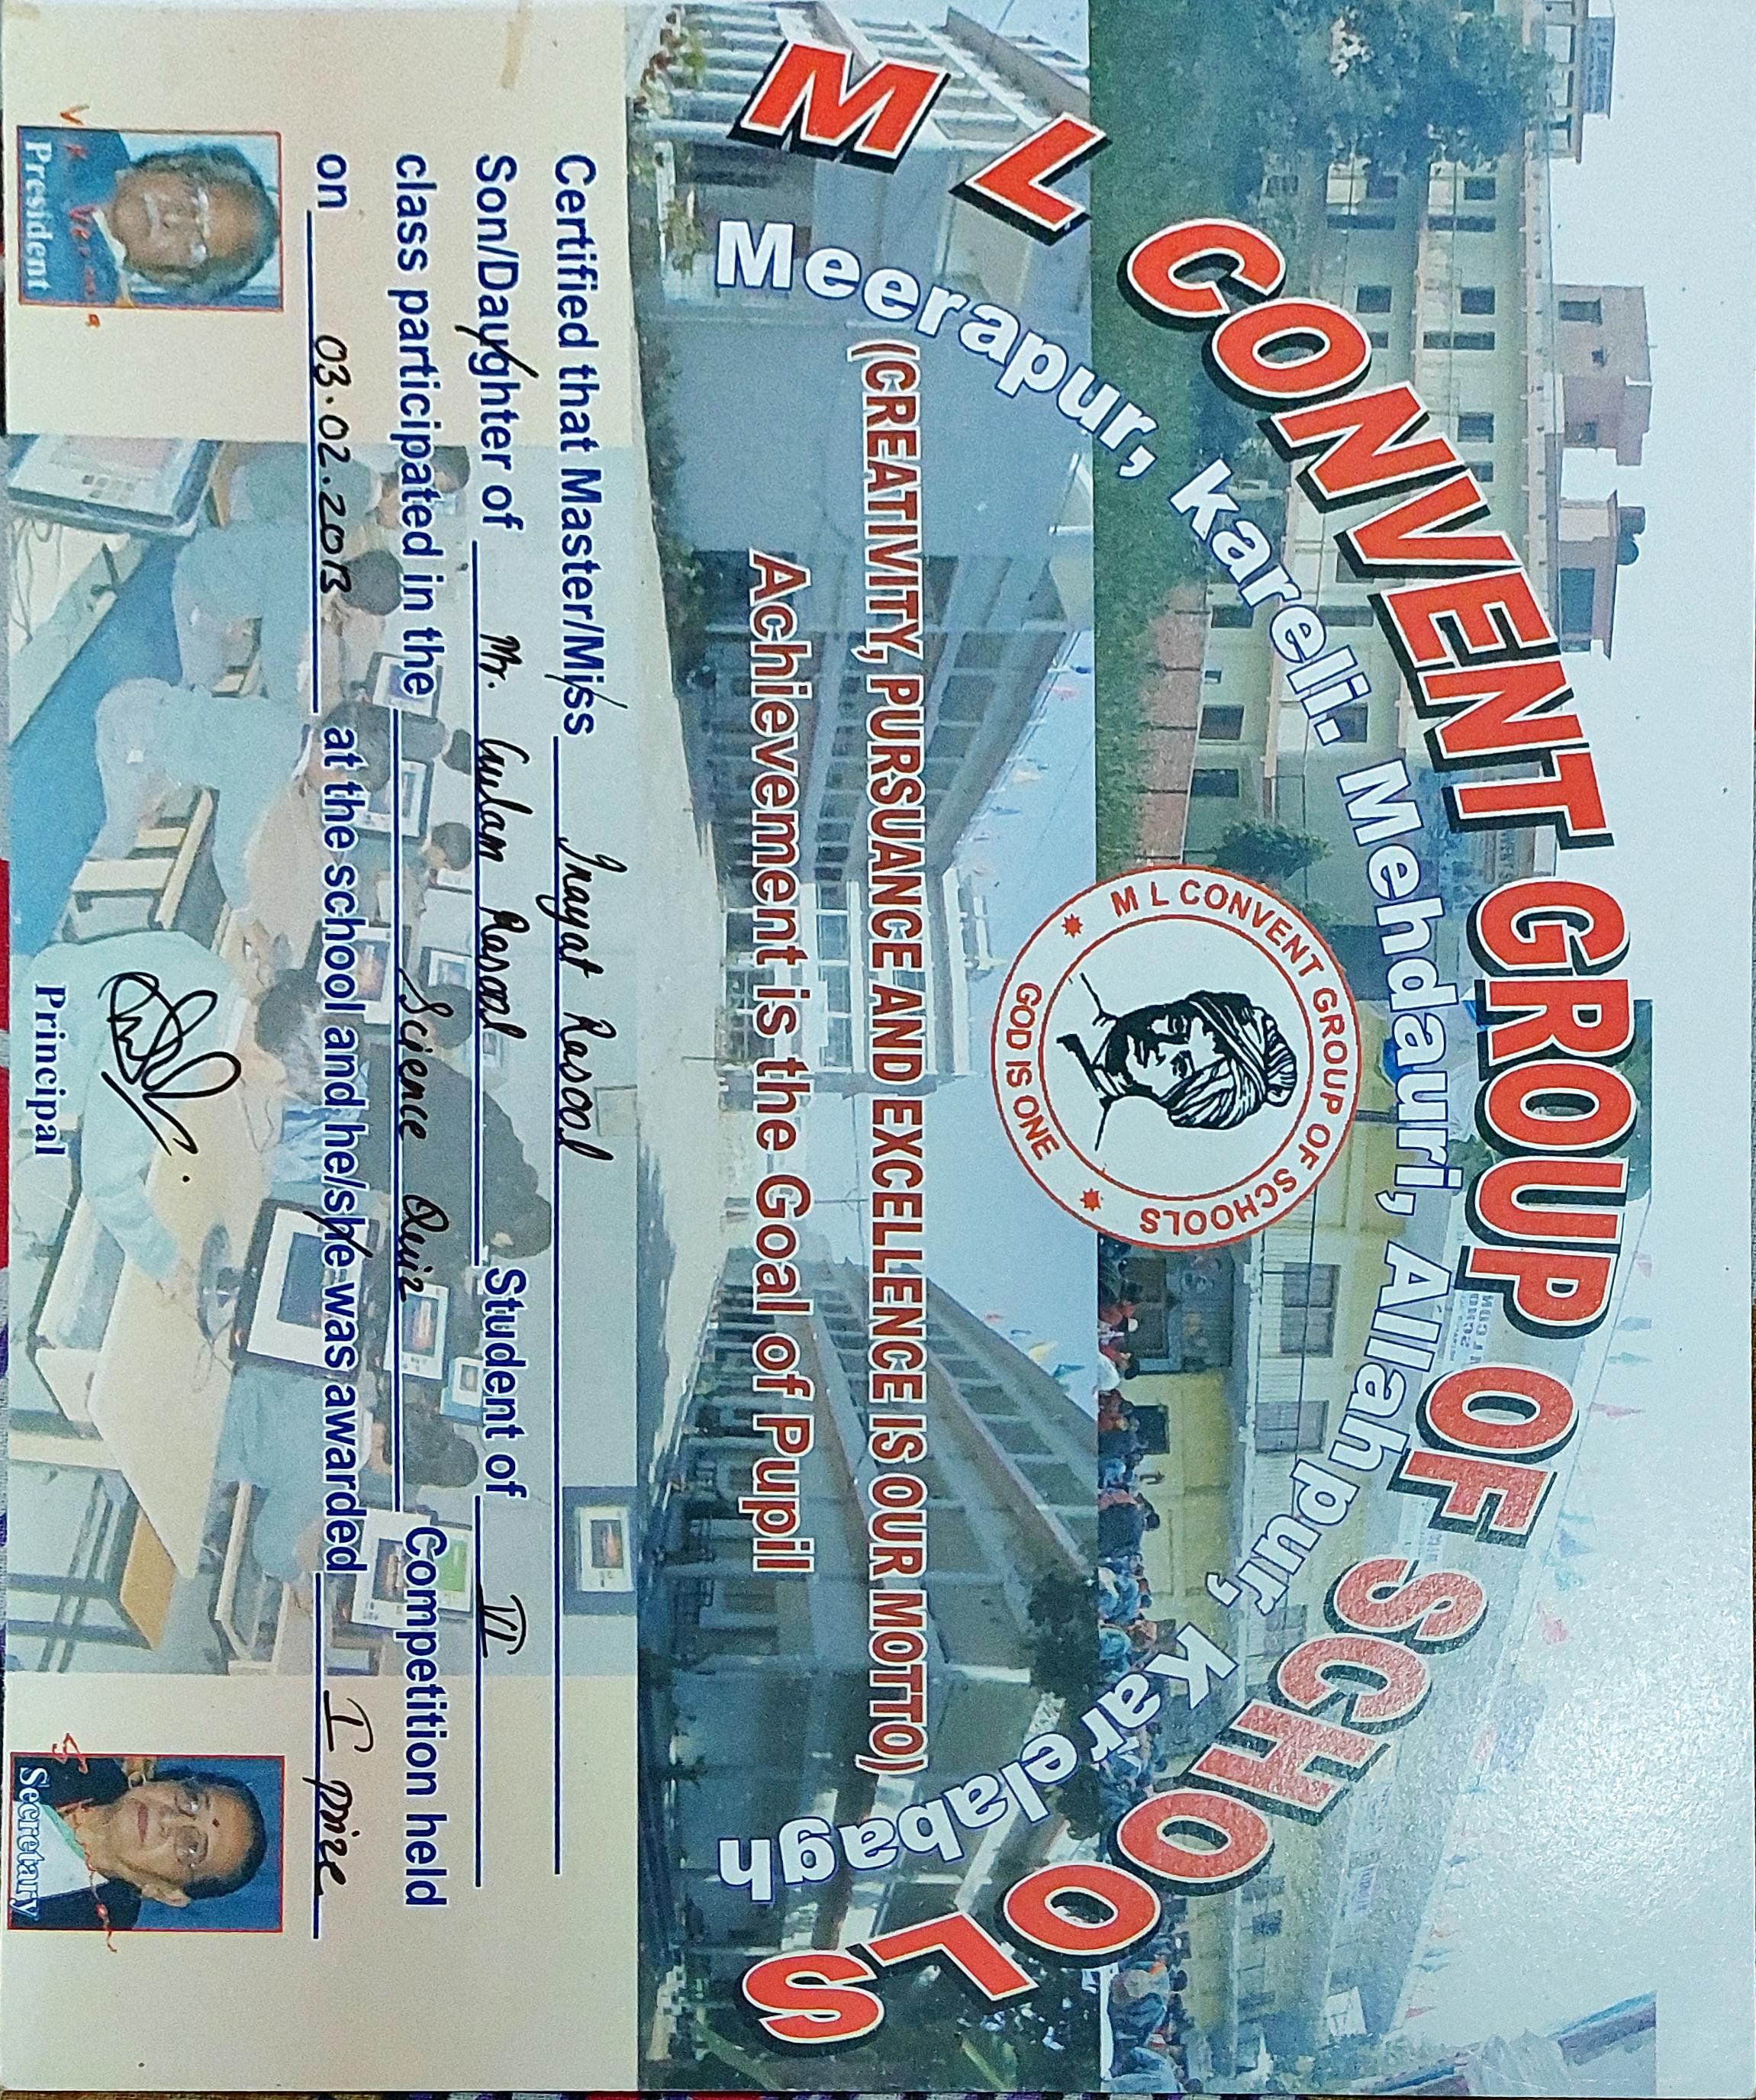 M L CONVENT GROUP OF SCHOOLS
Meerapur, kareli. Mehdauri, Allahpur, Karelabagh
M L CONVENT GROUP OF SCHOOLS
GOD IS ONE
(CREATIVITY, PURSUANCE AND EXCELLENCE IS OUR MOTTO)
Achievement is the Goal of Pupil
Certified that Master/Miss Inayat Rasool
Son/Daughter of Mr. Gulam Rasool Student of VI
class participated in the Science Quiz Competition held
on 03.02.2013 at the school and he/she was awarded I prize
V. K. Verma
President
Principal
Secretary